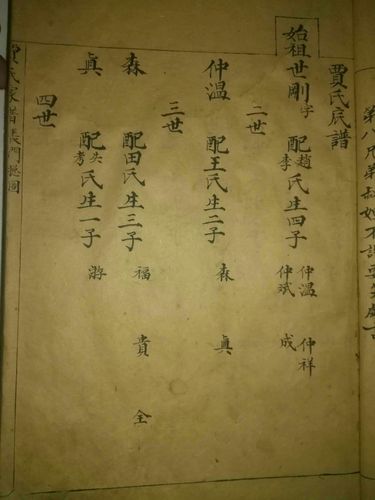 賈氏底譜
始祖世剛字 配趙李氏生四子 仲溫 仲祥 仲斌 成
二世
仲溫 配王氏生二子 森 真
三世
森 配田氏生三子 福 貴 全
真 配氏生一子
四世
賈氏家譜長門